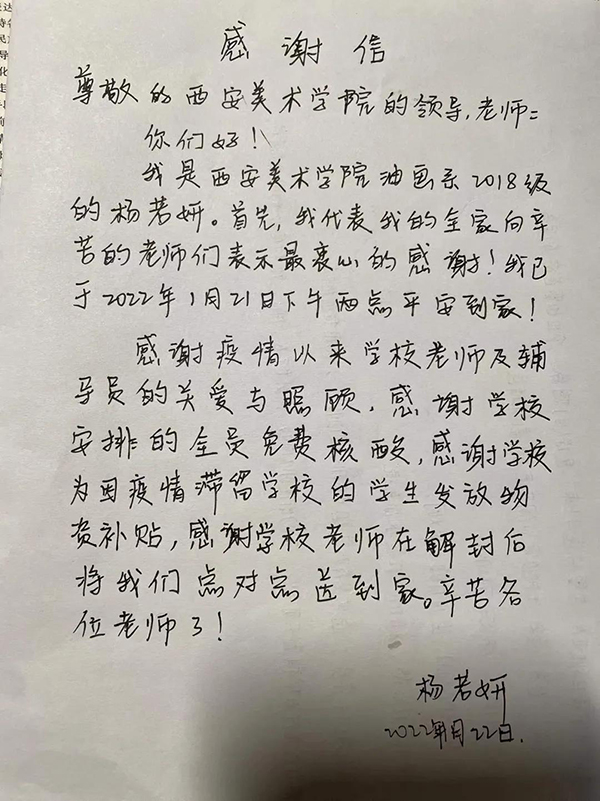 感谢信
尊敬的西安美术学院的领导,老师:
你们好!
我是西安美术学院油画系2018级
的杨若妍。首先,我代表我的全家向辛
苦的老师们表示最衷心的感谢!我已
于2022年1月21日下午两点平安到家!
感谢疫情以来学校老师及辅
导员的关爱与照顾,感谢学校
安排的全员免费核酸,感谢学校
为因疫情滞留学校的学生发放物
资补贴,感谢学校老师在解封后
将我们点对点送到家。辛苦各
位老师了!
杨若妍
2022年1月22日.